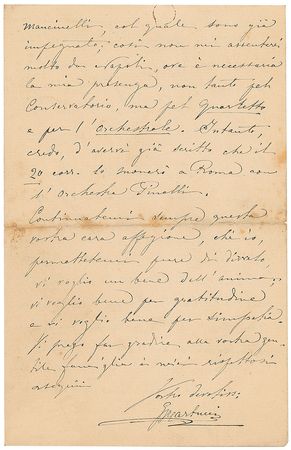 Mancinelli, col quale sono già
impegnato; così non mi assenterei
molto da Napoli, ove è necessaria
la mia presenza, non tanto pel
Conservatorio, ma pel Quartetto
e per l'Orchestrale. Intanto,
credo, d'avervi già scritto che il
20 corr. io suonerò a Roma con
l'orchestra Pinelli.
Continuatemi sempre questa
vostra cara affezione, chè io,
permettetemi pure di dirvelo,
vi voglio un bene dell'anima;
vi voglio bene per gratitudine
e vi voglio bene per simpatia.
Vi prego far gradire alla vostra gen-
tile famiglia i miei rispettosi
ossequii
Vostro devotiss.
GMartucci